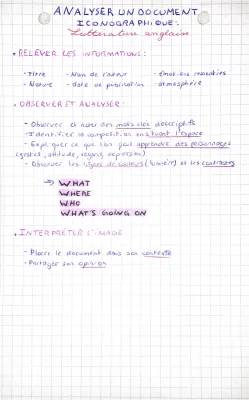 ANALYSER UN DOCUMENT
ICONOGRAPHIQUE.
Littérature anglaise
• RELEVER LES INFORMATIONS :
- Titre - Nom de l'auteur - émotions ressenties
- Nature - date de publication - atmosphère
• OBSERVER ET ANALYSER :
- Observer et noter des mots clés descriptifs
- Identifier la composition en suivant l'espace
- Expliquer ce que l'on peut apprendre des personnages
(gestes, attitude, regard, expression)
- Observer les types de couleurs (lumière) et les contrastes
→ WHAT
WHERE
WHO
WHAT'S GOING ON
• INTERPRÉTER L'IMAGE
- Placer le document dans son contexte
- Partager son opinion